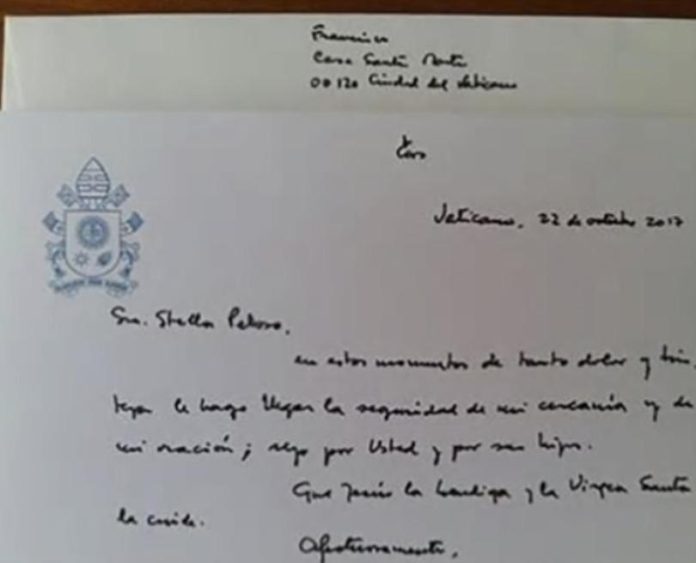 Francisco
Casa Santa Marta
00120 Ciudad del Vaticano
Vaticano, 22 de octubre 2017
Sra. Stella Peloso,
en estos momentos de tanto dolor y tris-
teza le hago llegar la seguridad de mi cercanía y de
mi oración; rezo por Usted y por sus hijos.
Que Jesús la bendiga y la Virgen Santa
la cuide.
Afectuosamente,